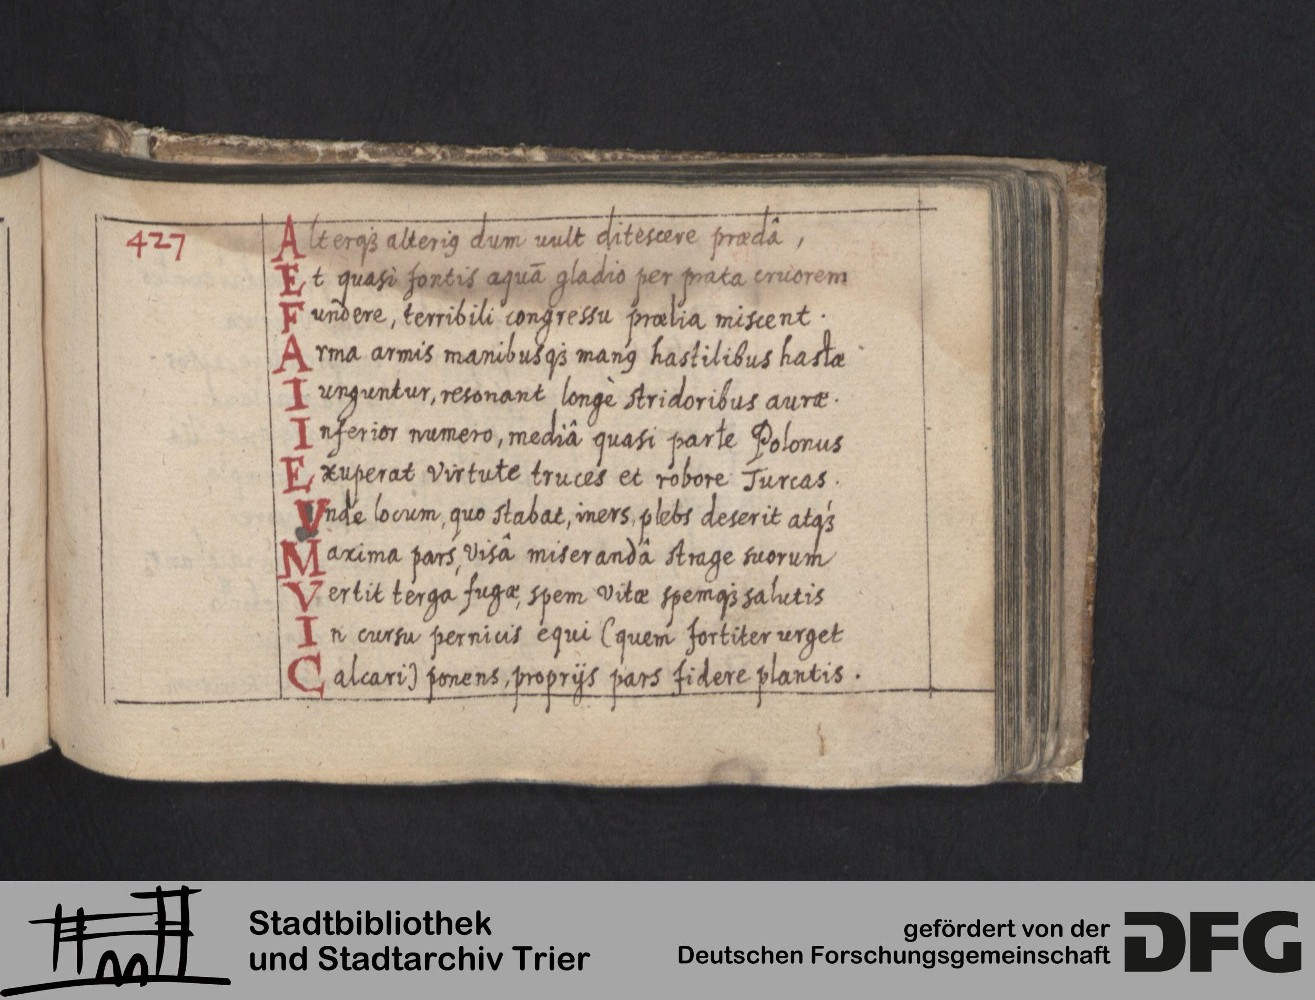 427
Alterqꝫ alteriꝰ dum uult ditescere prædâ,
Et quasi fontis aquā gladio per prata cruorem
Fundere, terribili congressu prœlia miscent.
Arma armis manibusqꝫ manꝰ hastilibus hastæ
Iunguntur, resonant longè stridoribus auræ.
Inferior numero, mediâ quasi parte Polonus
Exuperat virtute truces et robore Turcas.
Vnde locum, quo stabat, iners plebs deserit atqꝫ
Maxima pars, visâ miserandâ strage suorum
Vertit terga fugæ, spem vitæ spemqꝫ salutis
In cursu pernicis equi (quem fortiter urget
Calcari) ponens, proprijs pars fidere plantis.
Stadtbibliothek
und Stadtarchiv Trier
gefördert von der
Deutschen Forschungsgemeinschaft
DFG